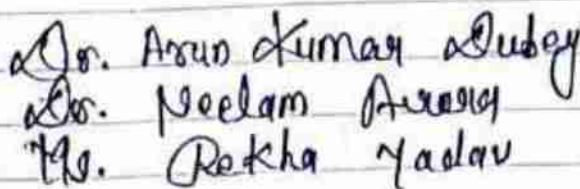 Dr. Arun Kumar Dubey
Dr. Neelam Arora
Ms. Rekha Yadav